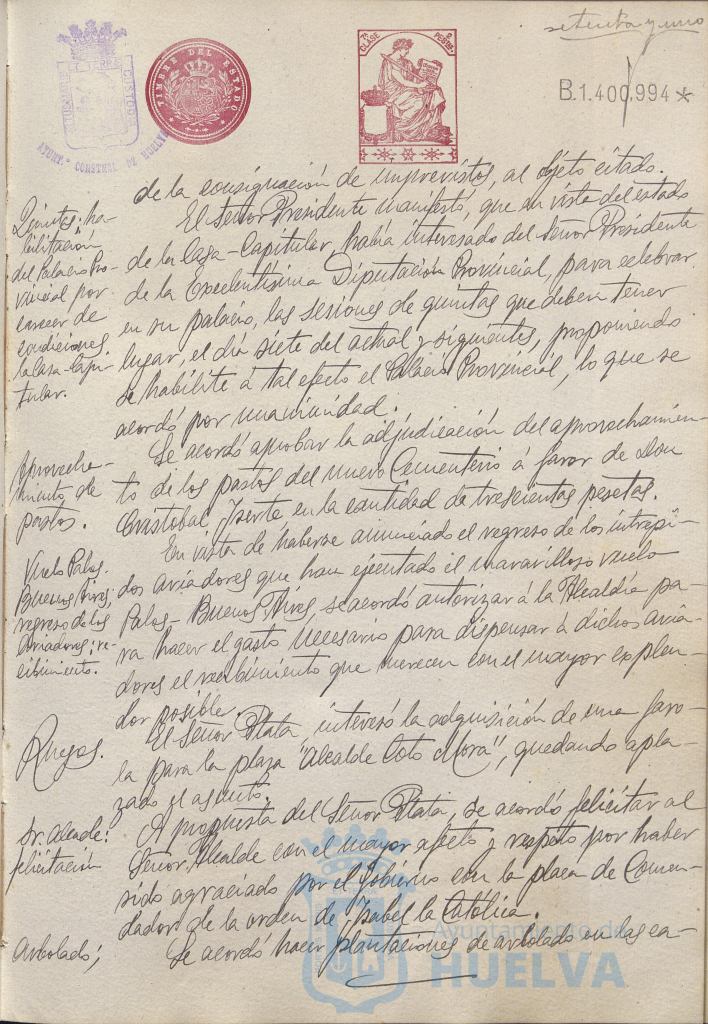 setenta y uno
TIMBRE DEL ESTADO
7ª CLASE
PESETAS
B.1.400,994 *
AYUNT.º CONSTNAL DE HUELVA
de la consignación de imprevistos, al objeto citado.
Quintas: ha-
bilitación
del Palacio Pro-
vincial por
carecer de
condiciones
la Casa-Capi-
tular.
El Señor Presidente manifestó, que en vista del estado
de la Casa-Capitular, había interesado del Señor Presidente
de la Excelentísima Diputación Provincial, para celebrar
en su palacio, las sesiones de quintas que deben tener
lugar, el día siete del actual y siguientes, proponiendo
se habilite á tal efecto el Palacio Provincial, lo que se
acordó por unanimidad.
Aprovecha-
miento de
pastos.
Se acordó aprobar la adjudicación del aprovechamien-
to de los pastos del nuevo Cementerio á favor de Don
Cristobal Iserte en la cantidad de trescientas pesetas.
Vuelo Palos-
Buenos Aires;
regreso de los
aviadores; re-
cibimiento.
En vista de haberse anunciado el regreso de los intrepi-
dos aviadores que han ejecutado el maravilloso vuelo
Palos-Buenos Aires se acordó autorizar á la Alcaldía pa-
ra hacer el gasto necesario para dispensar á dichos avia-
dores el recibimiento que merecen con el mayor explen-
dor posible.
Ruegos.
El Señor Plata, interesó la adquisición de una faro-
la para la plaza "Alcalde Coto Mora", quedando apla-
zado el asunto.
Sr. Alcalde:
felicitación
A propuesta del Señor Plata, se acordó felicitar al
Señor Alcalde con el mayor afecto y respeto por haber
sido agraciado por el Gobierno con la placa de Comen-
dador de la orden de Isabel la Católica.
Arbolado;
Se acordó hacer plantaciones de arbolado en las ca-
Ayuntamiento de
HUELVA